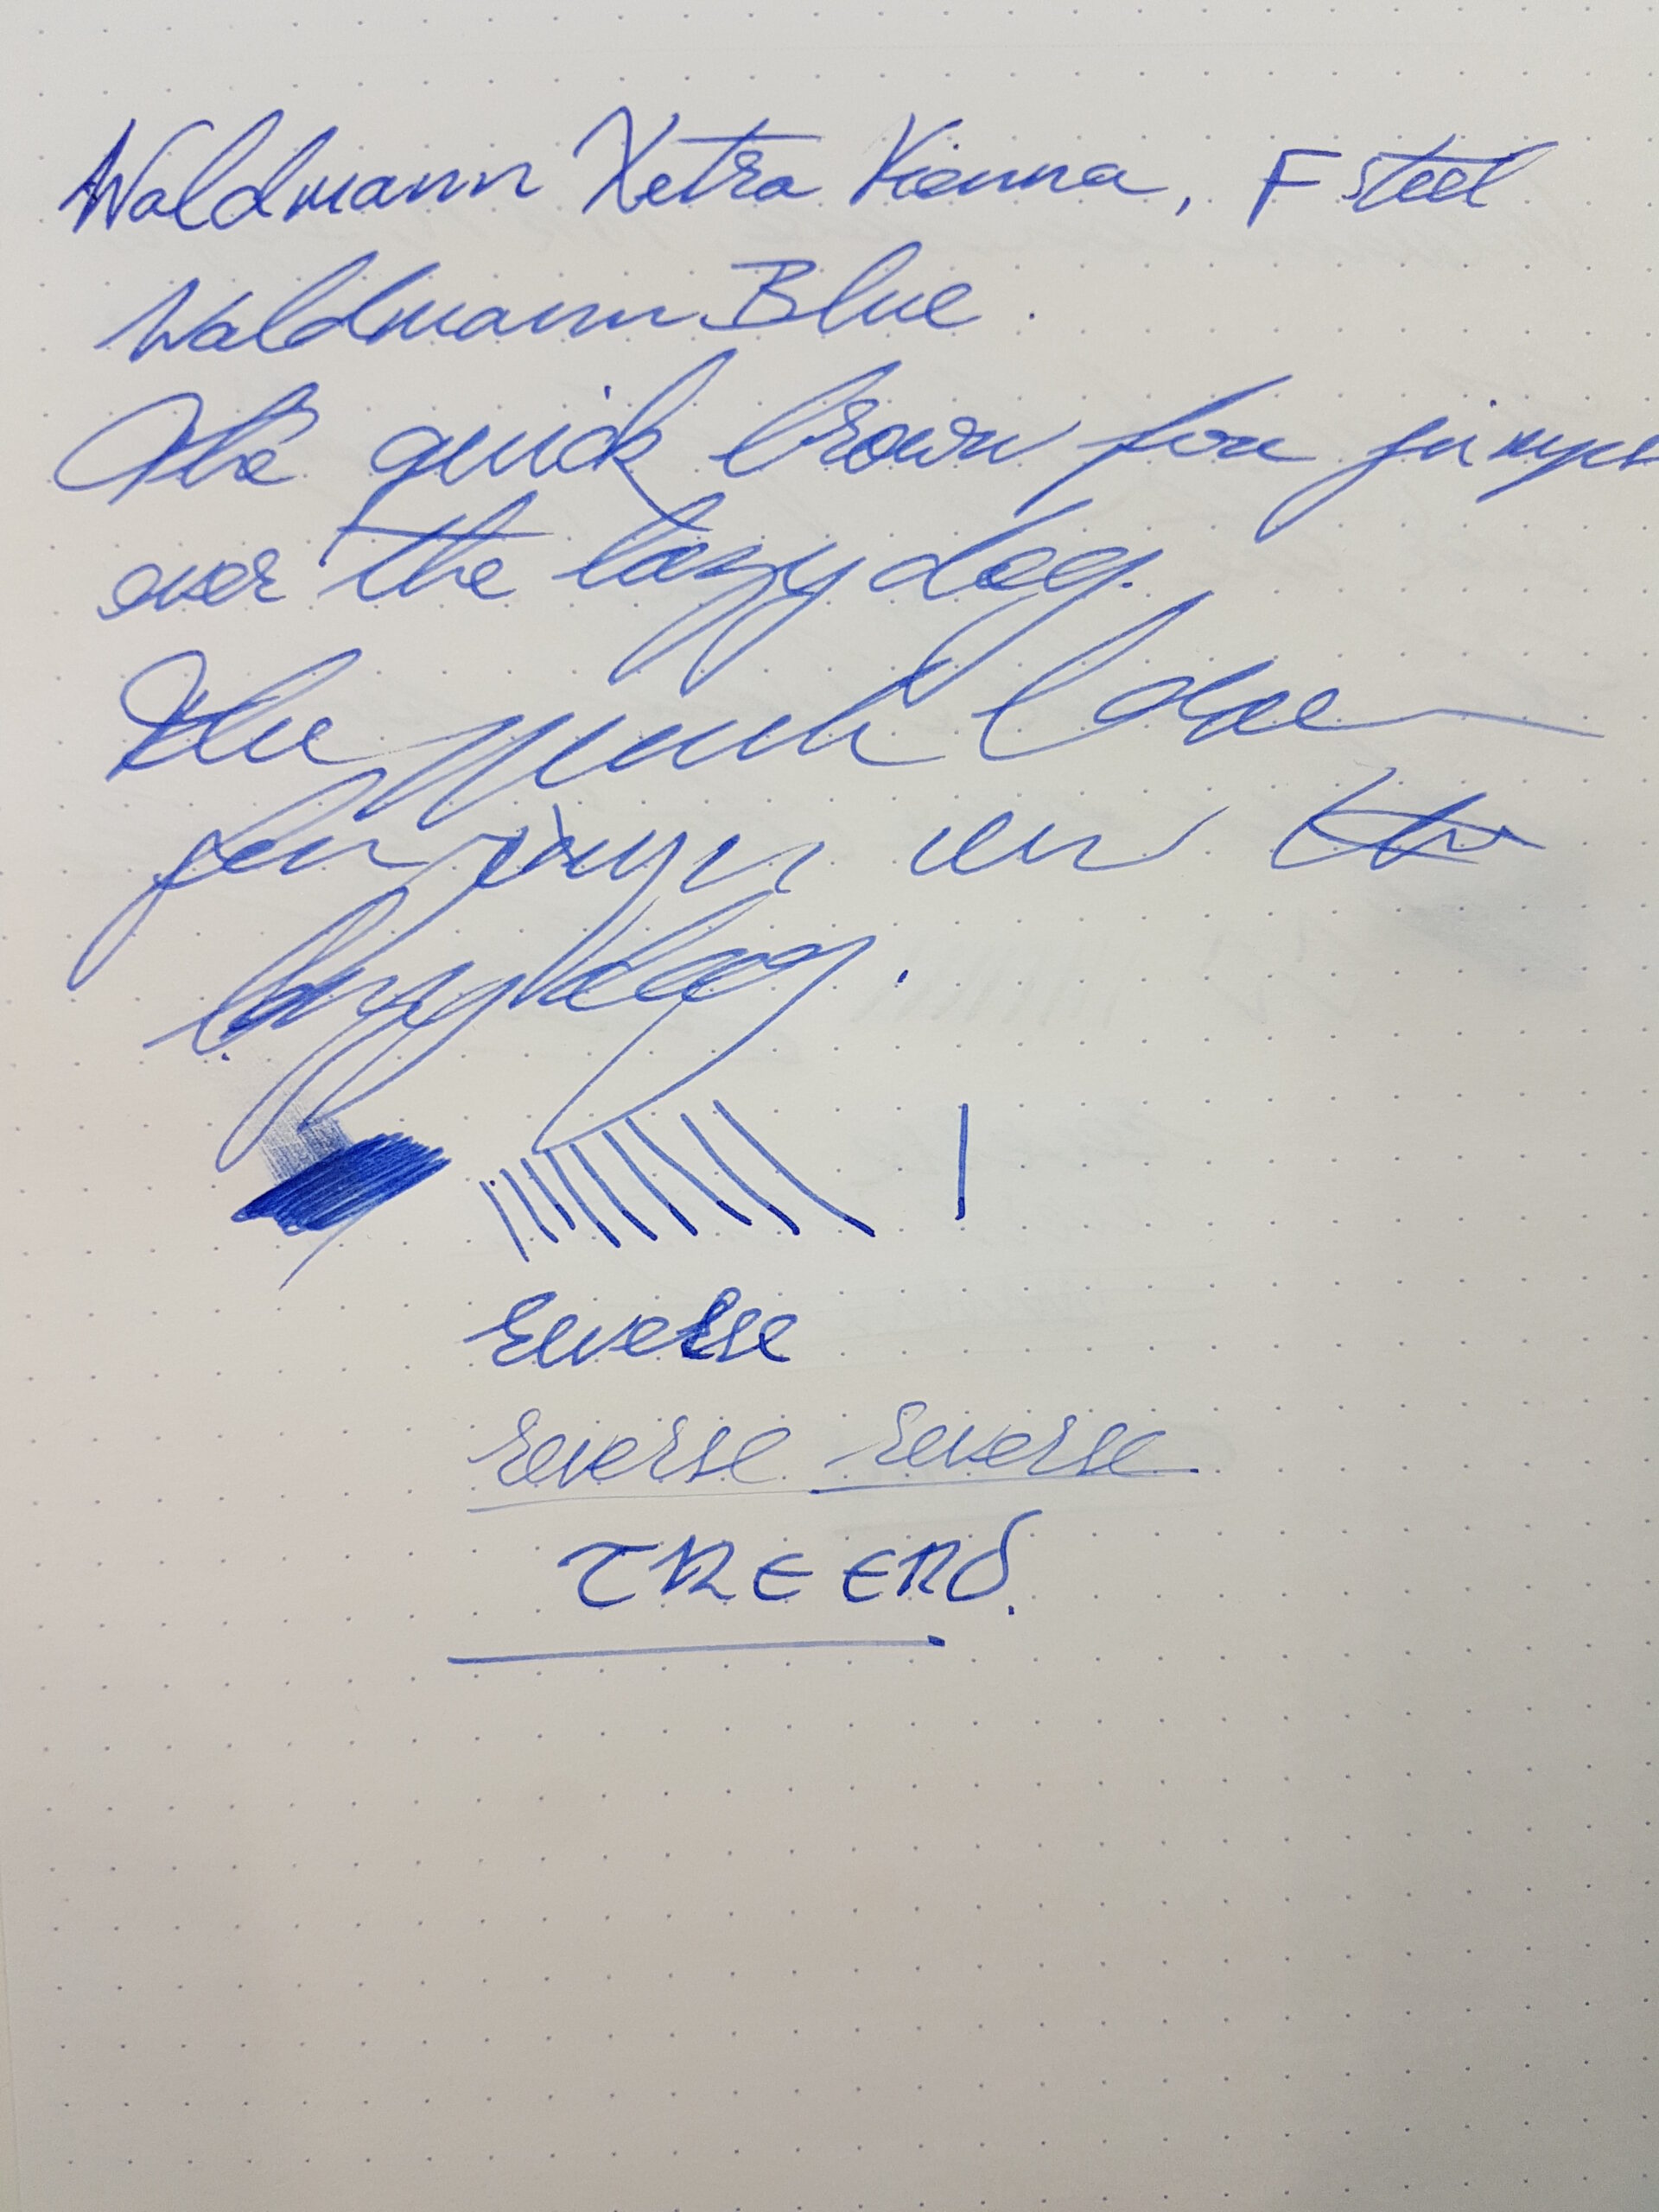 Waldmann Xetra Vienna, F steel
Waldmann Blue.
The quick brown fox jumps
over the lazy dog.
The quick
fox jumps over the
lazy dog.
reverse
reverse reverse
THE END.